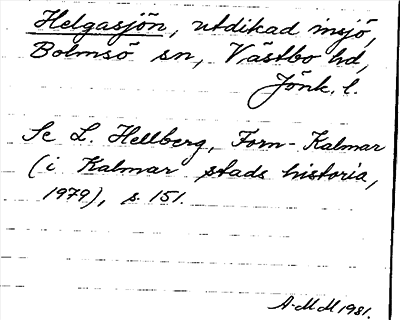 Helgasjön, utdikad insjö,
Bolmsö sn, Västbo hd,
Jönk. l.
Se L. Hellberg, Forn-Kalmar
(i Kalmar stads historia,
1979), s. 151.
A-M M 1981.